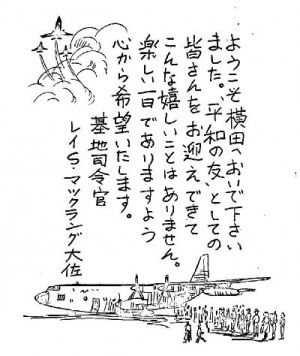 ようこそ横田へおいで下さい
ました。平和の友、としての
皆さんをお迎えできて
こんな嬉しいことはありません。
楽しい一日でありますよう
心から希望いたします。
基地司令官
レイS・マックラング大佐